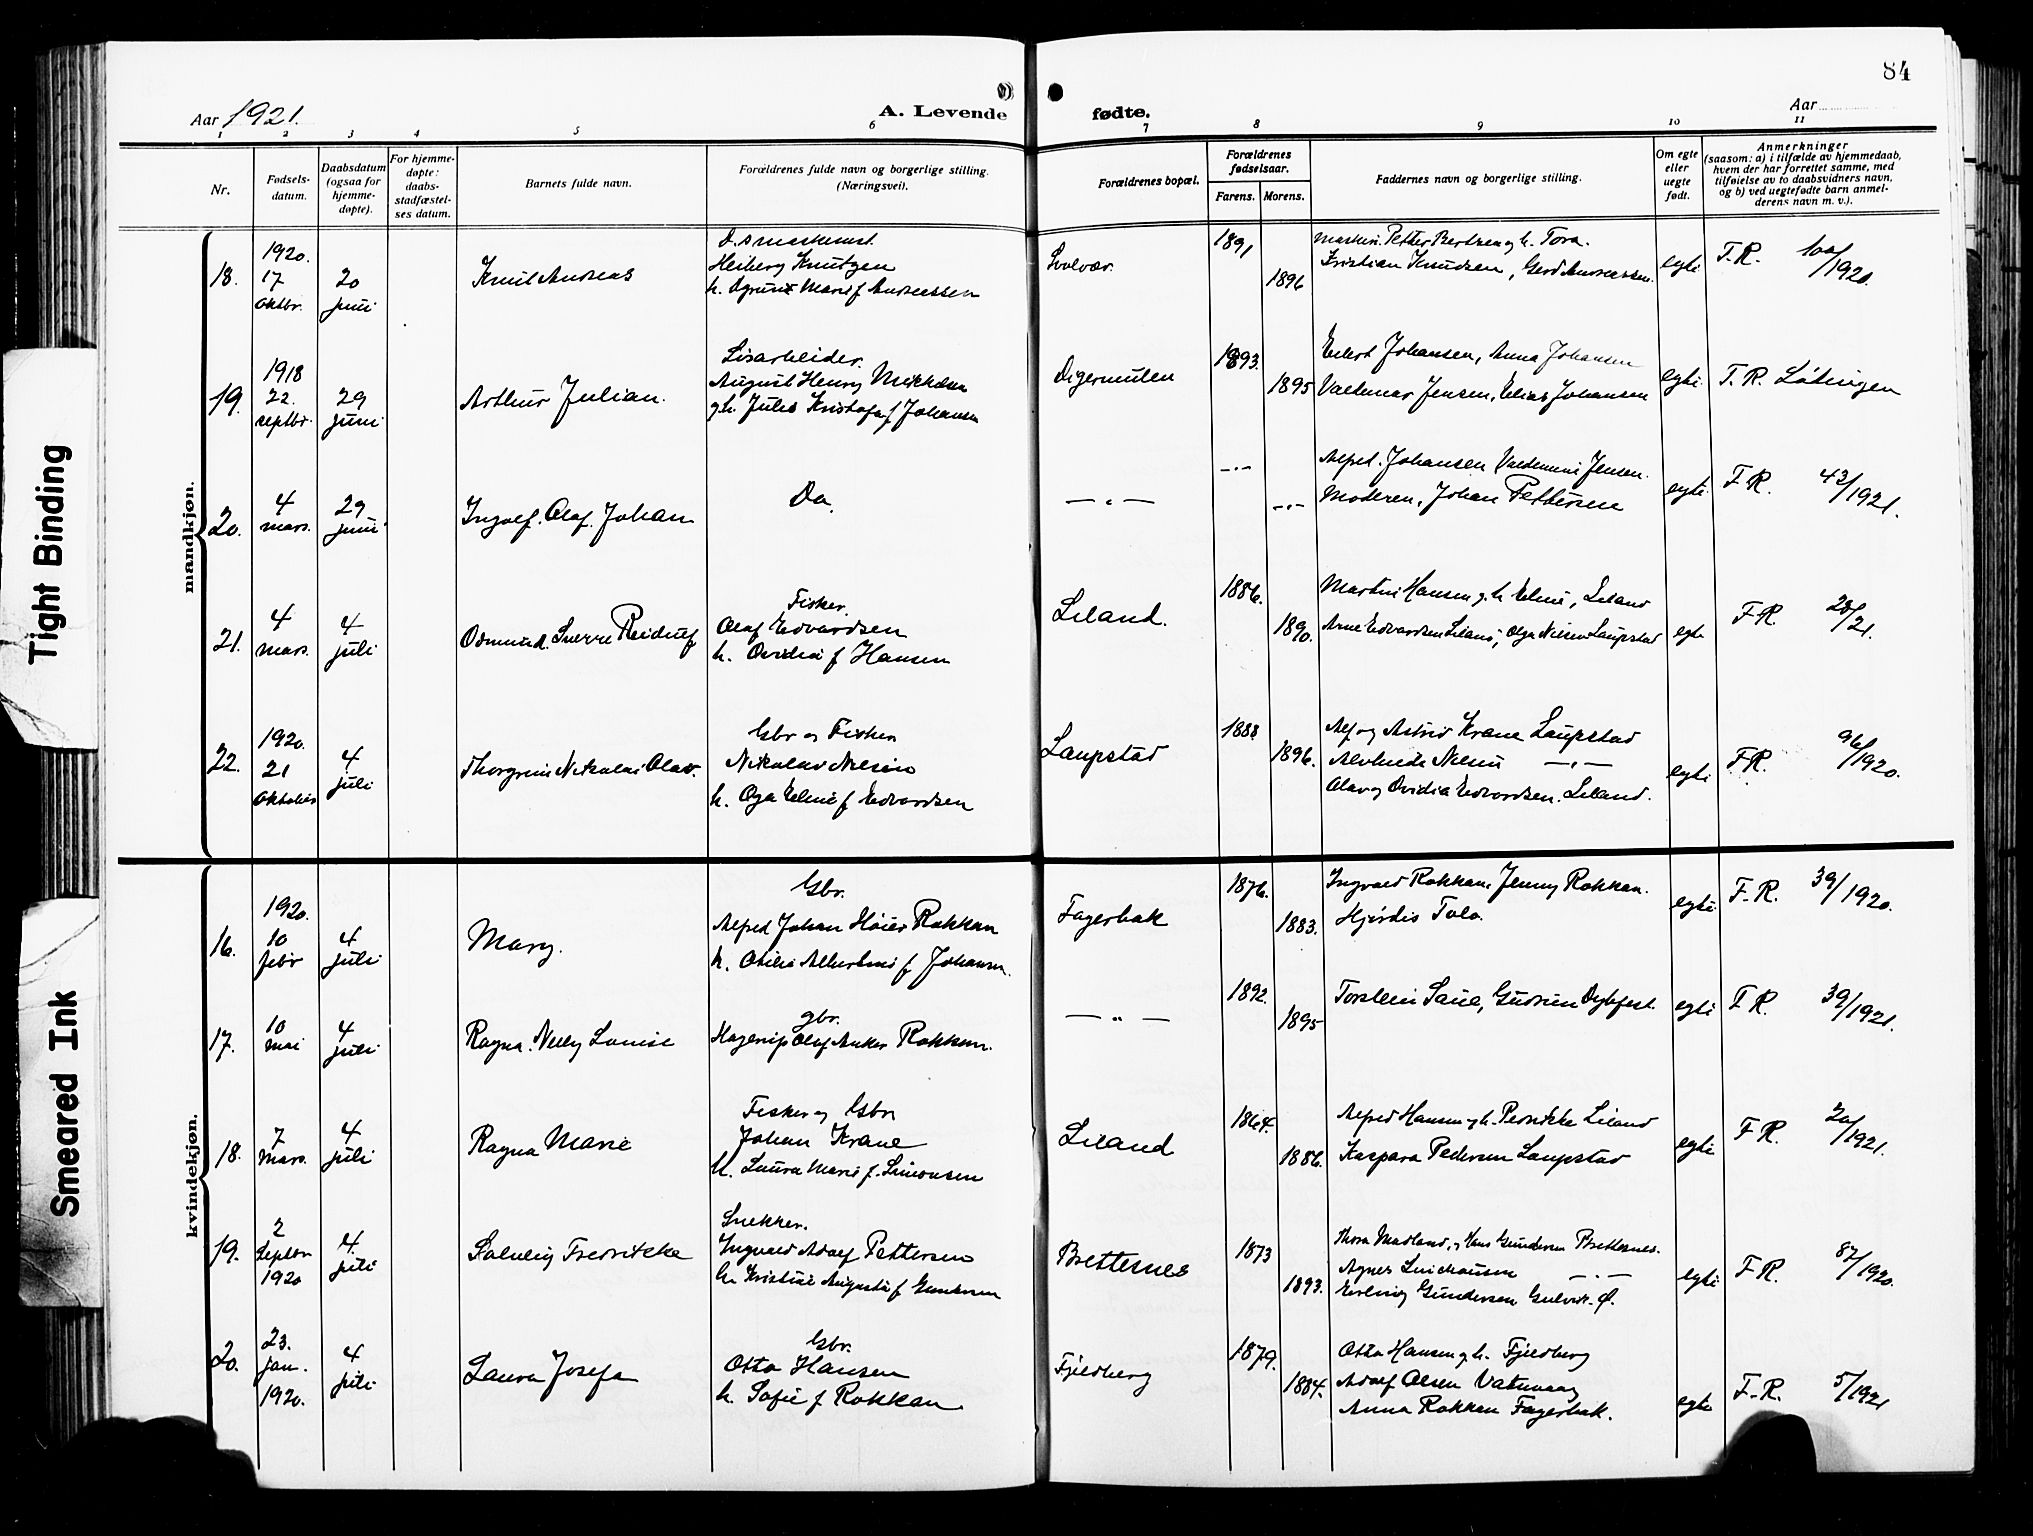 84
Aar 1921.
A. Levende
fødte.
Aar
1 2 3 4 5 6 7 8 9 10 11
Nr.
Fødsels-
datum.
Daabsdatum
(ogsaa for
hjemme-
døpte).
For hjemme-
døpte:
daabs-
stadfæstel-
ses datum.
Barnets fulde navn.
Forældrenes fulde navn og borgerlige stilling.
(Næringsvei).
Forældrenes bopæl.
Forældrenes
fødselsaar.
Farens. Morens.
Faddernes navn og borgerlige stilling.
Om egte
eller
uegte
født.
Anmerkninger
(saasom: a) i tilfælde av hjemmedaab,
hvem der har forrettet samme, med
tilføielse av to daabsvidners navn,
og b) ved uegtefødte barn anmel-
derens navn m. v.).
mandkjøn.
18.
1920.
17
Oktbr.
20
juni
Knut Andreas
Heiberg Knutzen
Marie f Andreassen
Svolvær
1891
1896
Petter Bertzen g. h. Tora.
Kristian Knudsen, Gerd Andreassen.
egte
F. R. 100/1920.
19.
1918
22.
septbr.
29
juni
Arthur Julian.
Løsarbeider.
August Henry
g. h. Jules Kristofa f Johansen
Digermulen
1893.
1895
Eilert Johansen, Anna Johansen
Valdemar Jensen, Elias Johansen
egte
F. R. Lødingen
20.
4
mars.
29
juni
Ingolf. Olaf. Johan
Do.
— „ —
-"-
-"-
Alfred. Johansen Jensen.
Moderen, Johan Pettersen
egte
F. R. 43/1921.
21.
4
mars.
4
juli
Odmund. Sverre Reidulf
Fisker.
Olaf Edvardsen
h. Ovidia f Hansen
Liland.
1886.
1890.
Martin Hansen g. h. Eline, Liland
Arne Edvardsen Liland, Olga Nilsen Laupstad
egte
F. R. 28/21.
22.
1920.
21
Oktober
4
juli
Thorgrim Nikolai Olav.
Gbr og Fisker
Nikolav Nilsen
h. Olga Eline f Edvardsen
Laupstad
1888
1896.
Alf og Astrid Krane Laupstad
Nilsen — „ —
Olav og Ovidia Edvardsen. Liland.
egte
F. R. 96/1920.
kvindekjøn.
16.
1920.
10
febr
4
juli
Mary.
Gbr.
Alfred Johan Høier Rokkan
h. Otilie Albertine f Johansen.
Fagerbak
1876.
1883.
Ingvald Rokkan, Jenny Rokkan.
Hjørdis
egte
F. R. 39/1920.
17.
10
mai
4
juli
Ragna. Nelly Louise
gbr.
Hagerup Olaf Anker Rokkan.
— „ —
1892.
1895
Torstein Gudrun Dybfest.
egte
F. R. 39/1921.
18.
7
mars.
4
juli
Ragna Marie
Fisker og Gbr
Johan Krane
h. Laura Marie f. Simonsen
Liland
1864.
1886.
Alfred Hansen g. h. Pernikke Liland
Kaspara Pedersen Laupstad
egte
F. R. 20/1921.
19.
2
Septbr
1920
4.
juli
Solveig Fredrikke
Snekker.
Ingvald Adolf Pettersen
h. Kristine Augusta f Gundersen
Brettesnes
1873
1893.
Thora Madland, Hans Gundersen Brettesnes.
Agnes — „ —
Erling Gundersen Gulvik. Ø.
egte
F. R. 87/1920.
20.
23.
jan.
1920.
4
juli
Laura Josefa
Gbr.
Otto Hansen
h. Sofie f Rokkan
Fjeldberg
1879.
1884.
Otto Hansen g. h. Fjeldberg
Adolf Olsen
Anna Rokkan Fagerbak.
egte
F. R. 5/1921
Tight Binding
Smeared Ink